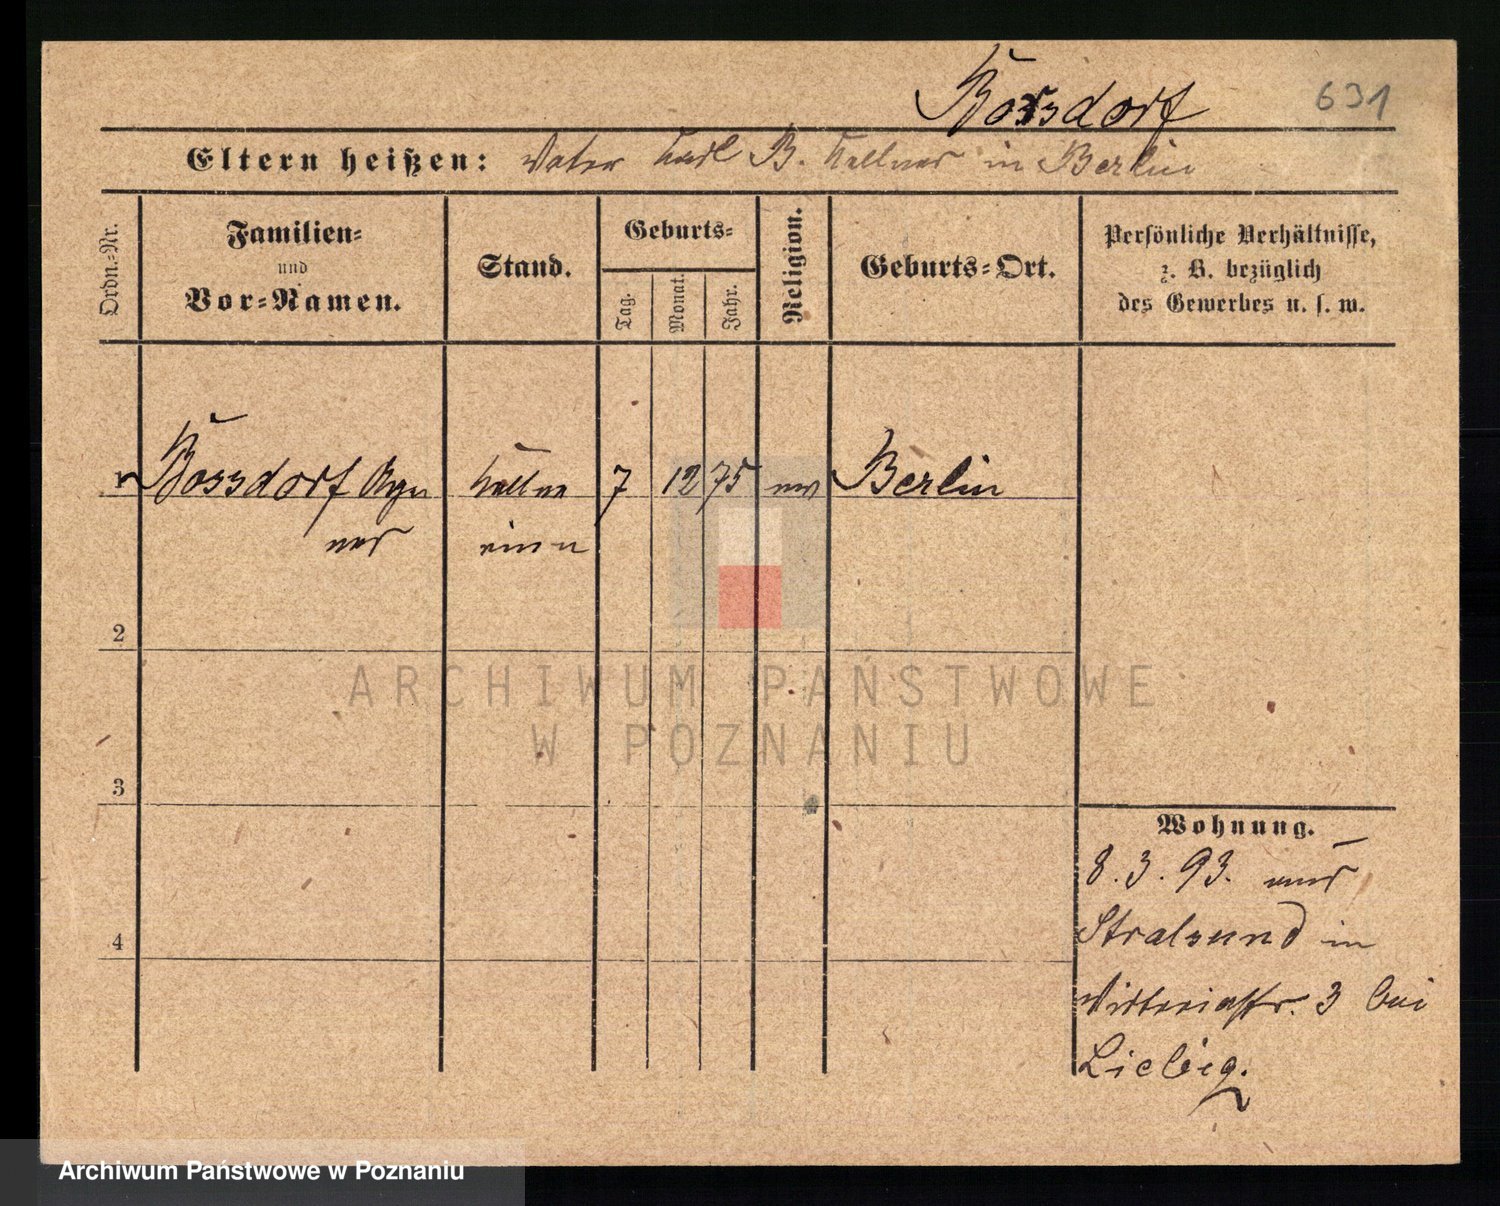 Bossdorf 631
Eltern heißen: Vater Karl B. Kellner in Berlin
Ordn.-Nr.
Familien-
und
Vor-Namen.
Stand.
Geburts-
Tag.
Monat.
Jahr.
Religion.
Geburts-Ort.
Persönliche Verhältnisse,
z. B. bezüglich
des Gewerbes u. s. w.
Bossdorf Agn Kelln 7 12 75 ev Berlin
erin
2
3
4
Wohnung.
8. 3. 93. aus
Stralsund in
Victoriastr. 3 bei
Liebig.
ARCHIWUM PAŃSTWOWE
W POZNANIU
Archiwum Państwowe w Poznaniu